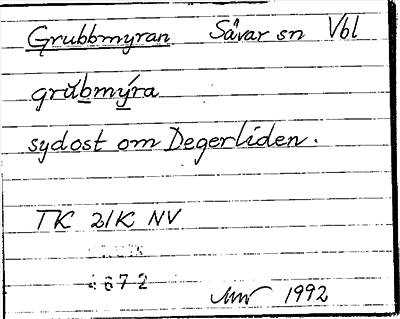 Grubbmyran Sävar sn Vbl
grúbmýra
sydost om Degerliden.
TK 21K NV
4672
1992